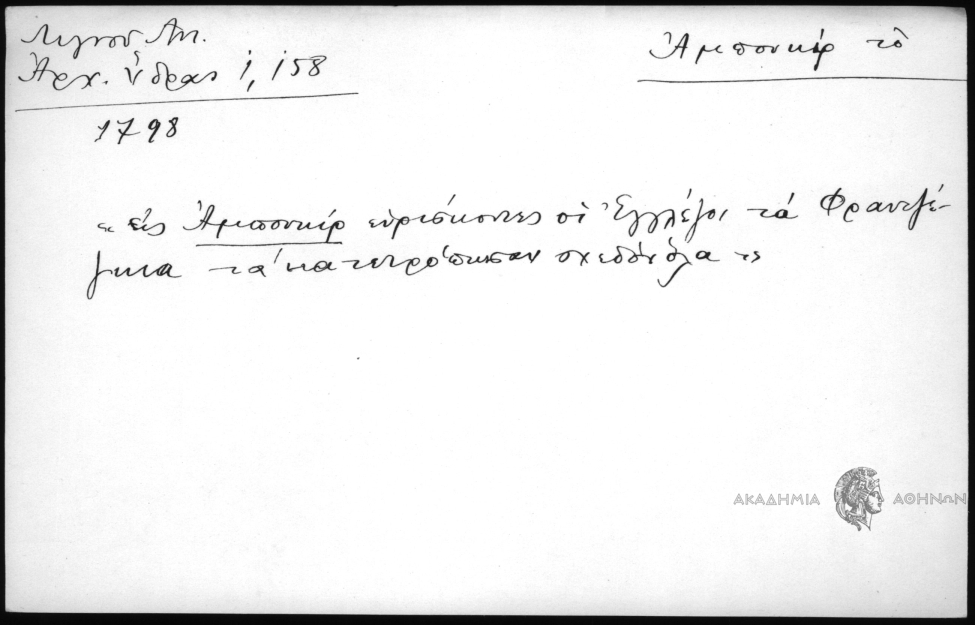 Λιγνοῦ Ἀν.
Ἀρχ. Ὕδρας 1, 158
Ἀμπουκίρ τὸ
1798
« εἰς Ἀμπουκίρ εὑρίσκοντες οἱ Ἐγγλέζοι τά Φραντζέ-
ζικα τά κατετρόπωσαν σχεδόν ὅλα »
ΑΚΑΔΗΜΙΑ ΑΘΗΝΩΝ